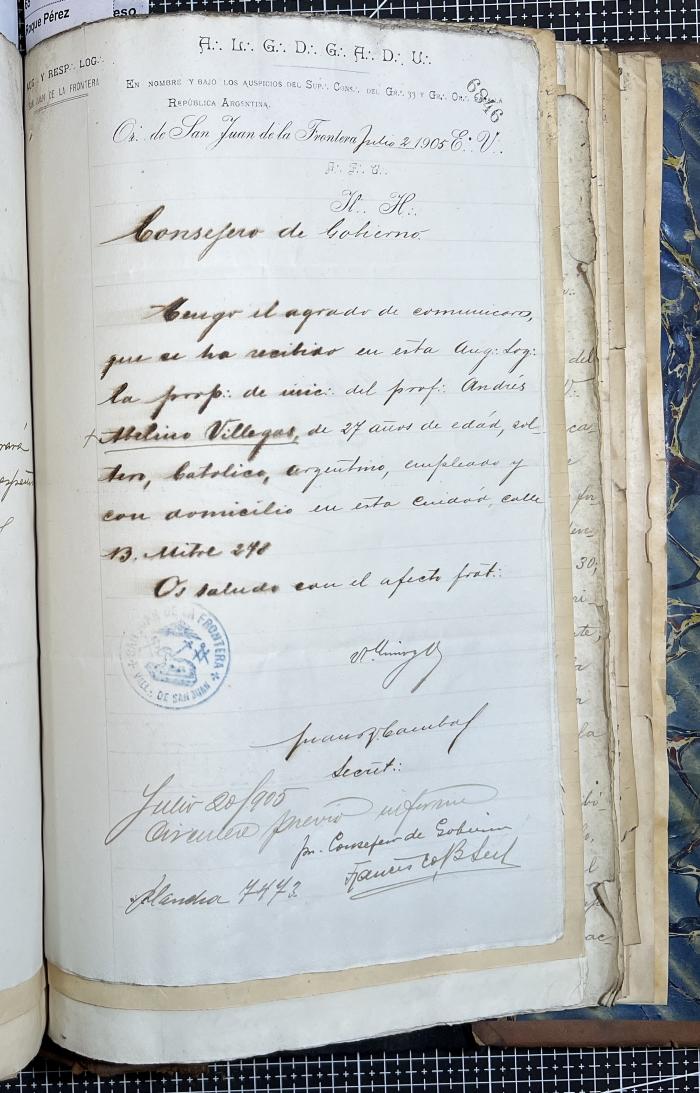 Roque Pérez
eso
Y RESP∴ LOG∴
SAN JUAN DE LA FRONTERA
A∴ L∴ G∴ D∴ G∴ A∴ D∴ U∴
6846
EN NOMBRE Y BAJO LOS AUSPICIOS DEL SUP∴ CONS∴ DEL GR∴ 33 Y GR∴ OR∴
REPÚBLICA ARGENTINA.
Or∴ de San Juan de la Frontera Julio 2 1905 E∴ V∴
H∴ H∴
Consejero de Gobierno.
Tengo el agrado de comunicaros,
que se ha recibido en esta Aug∴ Log∴
la prop∴ de inic∴ del prof∴ Andrés
Abelino Villegas, de 27 años de edád, sol-
tero, Catolico, argentino, empleado y
con domicilio en esta Ciudád, calle
B. Mitre 278
Os saludo con el afecto frat∴
SAN JUAN DE LA FRONTERA
VALL∴ DE SAN JUAN
Secret∴
Julio 20/905
Circulese previo informe
pr. Consejero de Gobierno
Francisco B Seil
Plancha 7473